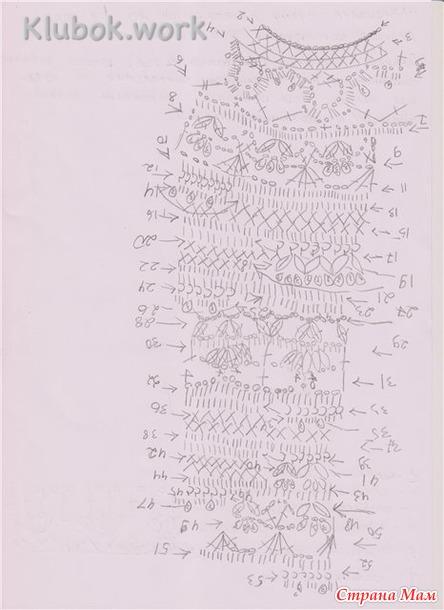 Klubok.work
4 2
6
8
7
9
10
12
11
14
13
16
15
20
17
22
19
24
21
23
26
28
29
30
31
32
36
35
38
42
39
44
41
45
43
47
48
49
50
51
52
53
Страна Мам